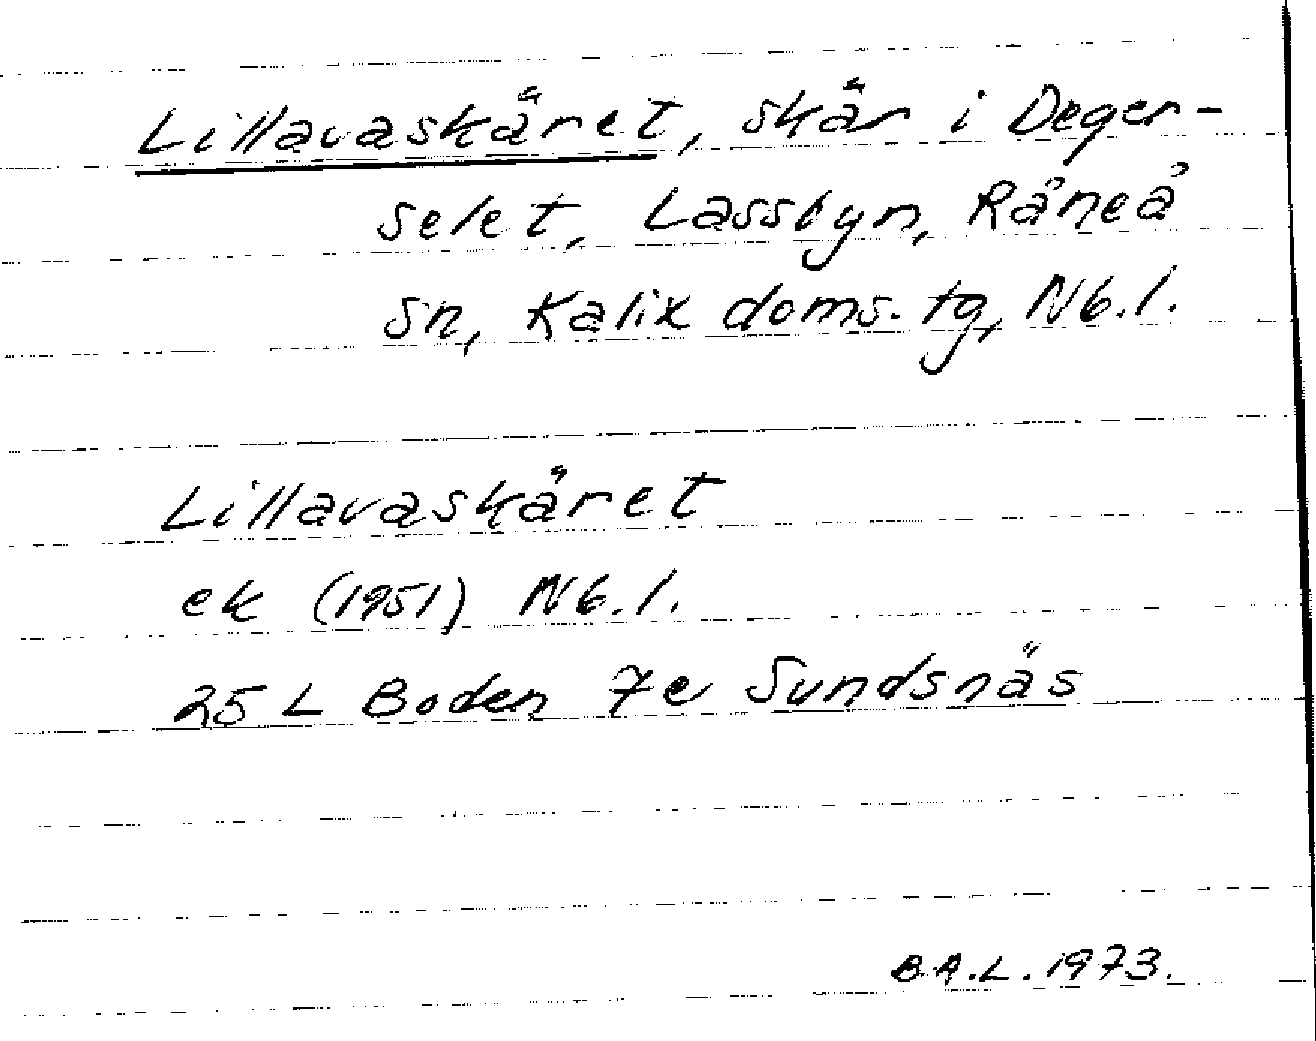 Lillavaskäret, skär i Deger-
selet, Lassbyn, Råneå
sn, Kalix doms. tg, Nb. l.
Lillavaskäret
ek (1951) Nb. l.
25 L Boden 7e Sundsnäs
B.A.L. 1973.